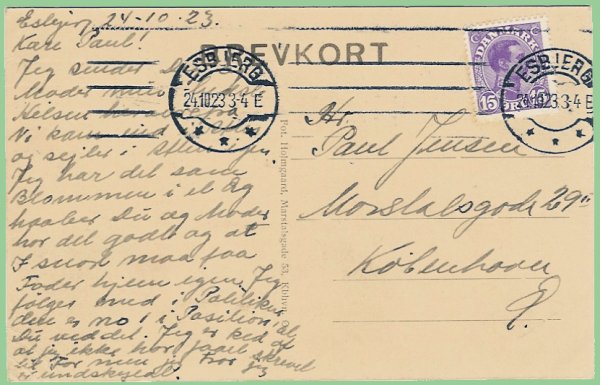 Esbjerg, 24-10-23.
Kære Paul!
Jeg sender Dig
Moder mine
Hilsen herovre fra
Vi kom ind
og sejler i Aften igen
Jeg har det som
Blommen i et Æg
haaber Du og Moder
har det godt og at
I snart maa faa
Fader hjem igen. Jeg
følger med i Politiken
den er no 1 i Position, at
Du ved det. Jeg er ked af
at jeg ikke har faaet skrevet
til Før men jeg
er undskyldt
BREVKORT
ESBJERG
24.10.23 3-4 E
DANMARK
15 ØRE 15
ESBJERG
24.10.23 3-4 E
Hr.
Paul Jensen
Marstalsgade 29
København
Ø.
Fot. Holmgaard, Marstalsgade 53, Kbhvn.